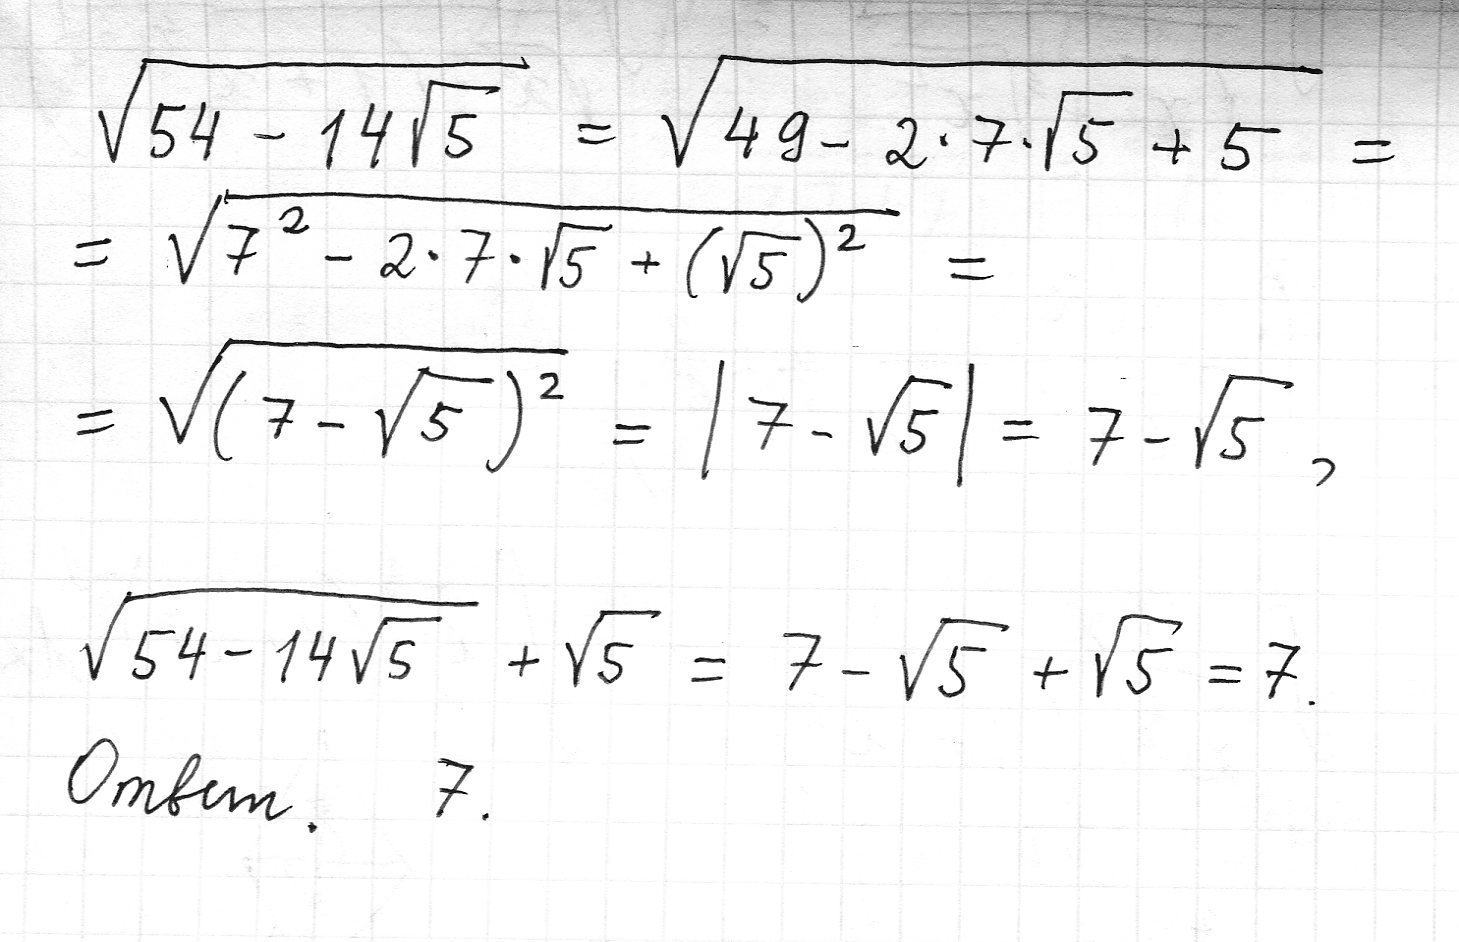 √(54 - 14√5) = √(49 - 2·7·√5 + 5) =
= √(7² - 2·7·√5 + (√5)²) =
= √((7 - √5)²) = |7 - √5| = 7 - √5,
√(54 - 14√5) + √5 = 7 - √5 + √5 = 7.
Ответ. 7.